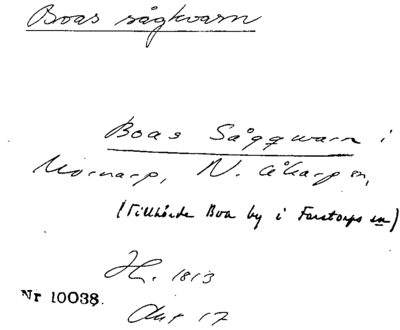 Boas sågkvarn
Boas Sågqwarn i
Mörarp, N. Åkarp sn,
(Tillhörde Boa by i Farstorps sn)
H. 1813
Nr 10038.
Aug 17